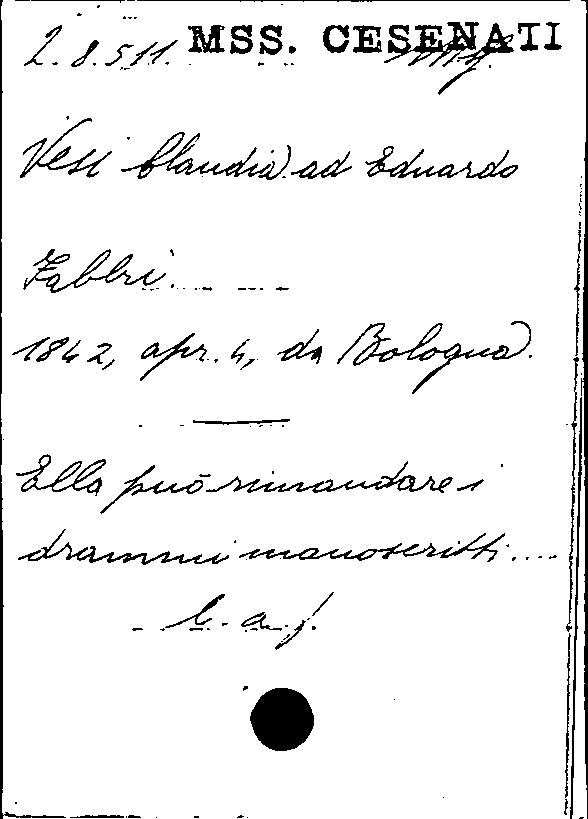 2.8.511. MSS. CESENATI
Vesi Claudia ad Eduardo
Fabbri.
1842, apr. 4, da Bologna.
Ella può rimandare i
drammi manoscritti....
L. a. f.